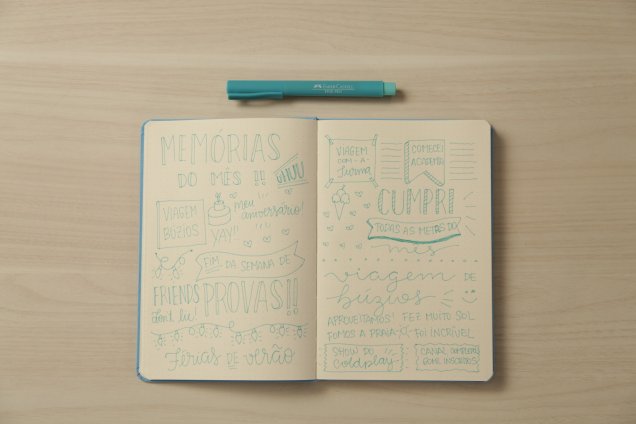 FABER-CASTELL
MEMÓRIAS
DO MÊS !! UHUU
VIAGEM
BÚZIOS
meu
aniversário!
YAY!!
FIM DA SEMANA DE
PROVAS!!
FRIENDS
don't lie!
Férias DE verão
VIAGEM
COM-A-
turma
COMECEI
ACADEMIA
CUMPRI
TODAS AS METAS DO
mês
viagem DE
búzios
APROVEITAMOS! FEZ MUITO SOL
FOMOS A PRAIA FOI INCRÍVEL
SHOW DO
coldplay
CANAL COMPLETOU
INSCRITOS!